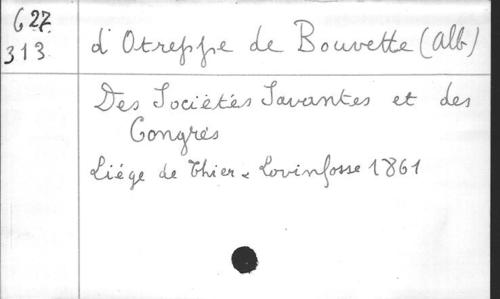 627.
313
d'Otreppe de Bouvette (Alb)
Des Sociétés Savantes et des
Congrès
Liége de Thier & Lovinfosse 1861